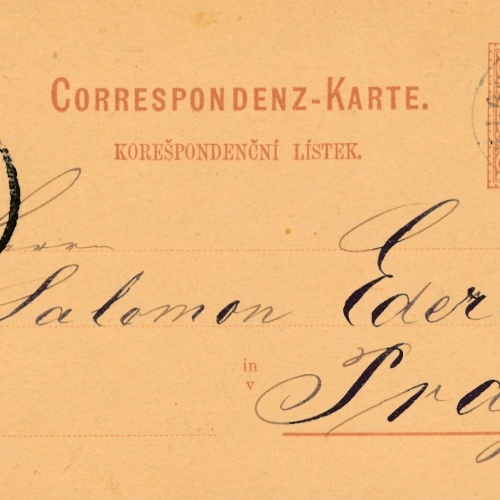 CORRESPONDENZ-KARTE.
KOREŠPONDENČNÍ LÍSTEK.
Herrn
Salomon Eder
in
v
Prag